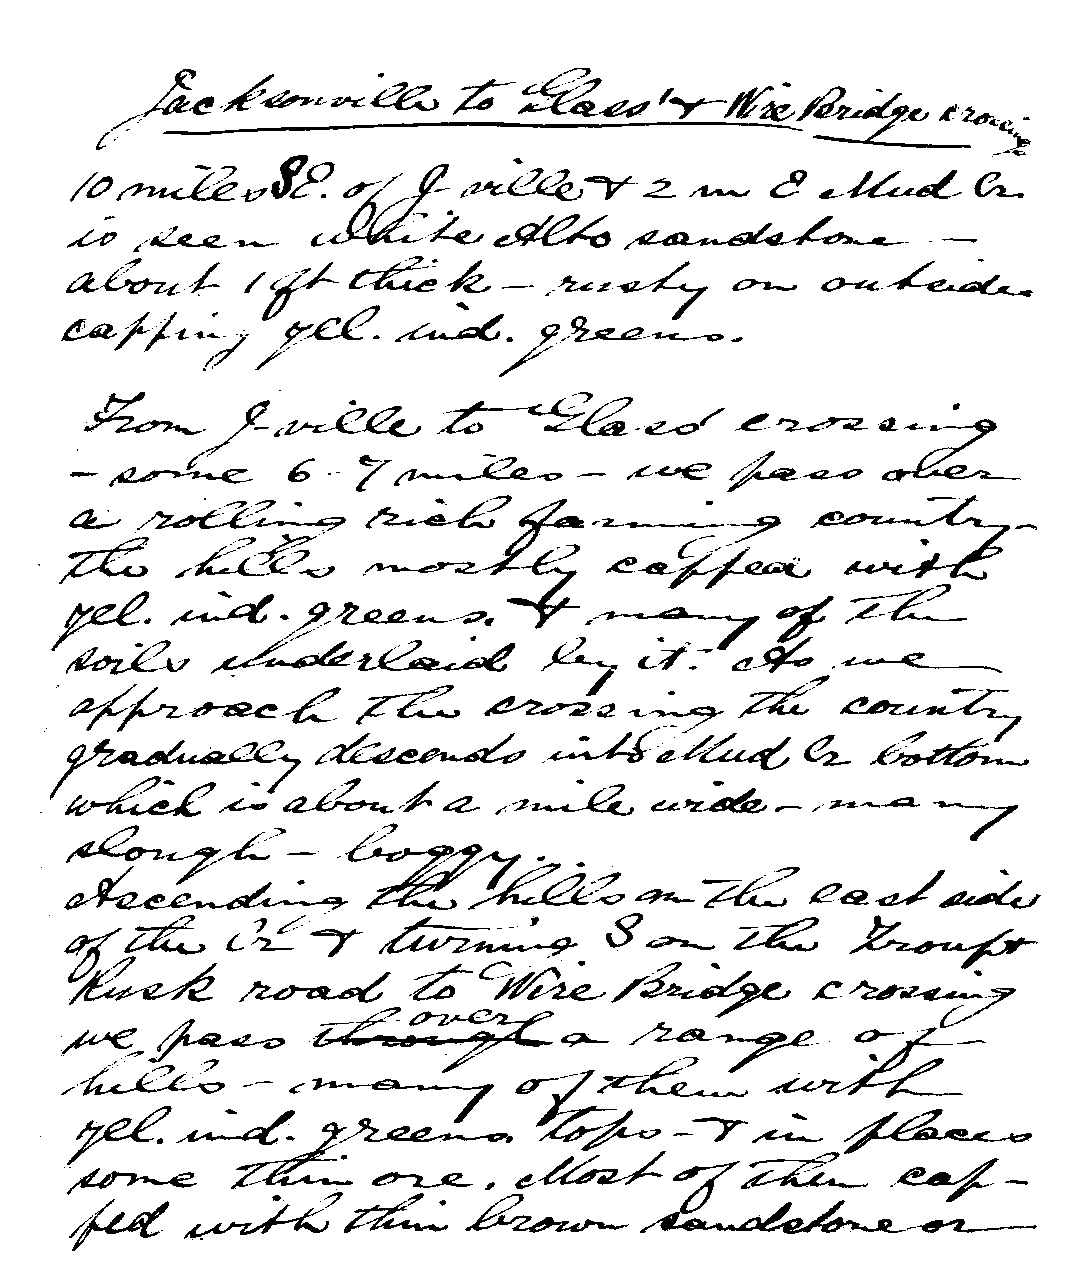 Jacksonville to Glass' & Wire Bridge crossing
10 miles SE. of J-ville & 2 m E Mud Cr.
is seen white Alto sandstone —
about 1 ft thick – rusty on outside.
capping yel. ind. greens.
From J-ville to Glass' crossing
– some 6-7 miles – we pass over
a rolling rich farming country –
the hills mostly capped with
yel. ind. greens. & many of the
soils underlaid by it. As we
approach the crossing the country
gradually descends into Mud Cr bottom
which is about a mile wide – many
slough – boggy.
Ascending the hills on the east side
of the Cr & turning S on the Troup &
Rusk road to Wire Bridge crossing
we pass through over a range of
hills – many of them with
yel. ind. greens. tops – & in places
some thin ore. Most of them cap-
ped with thin brown sandstone or